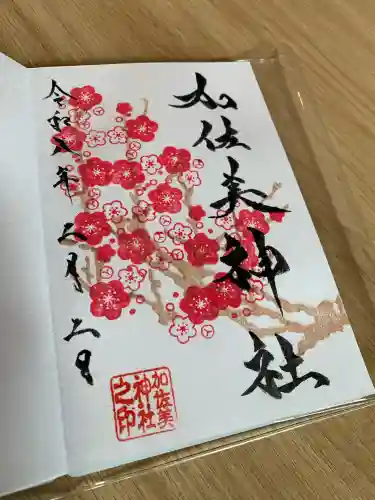 加佐美神社
令和八年
二月二日
加佐美
神社
之印